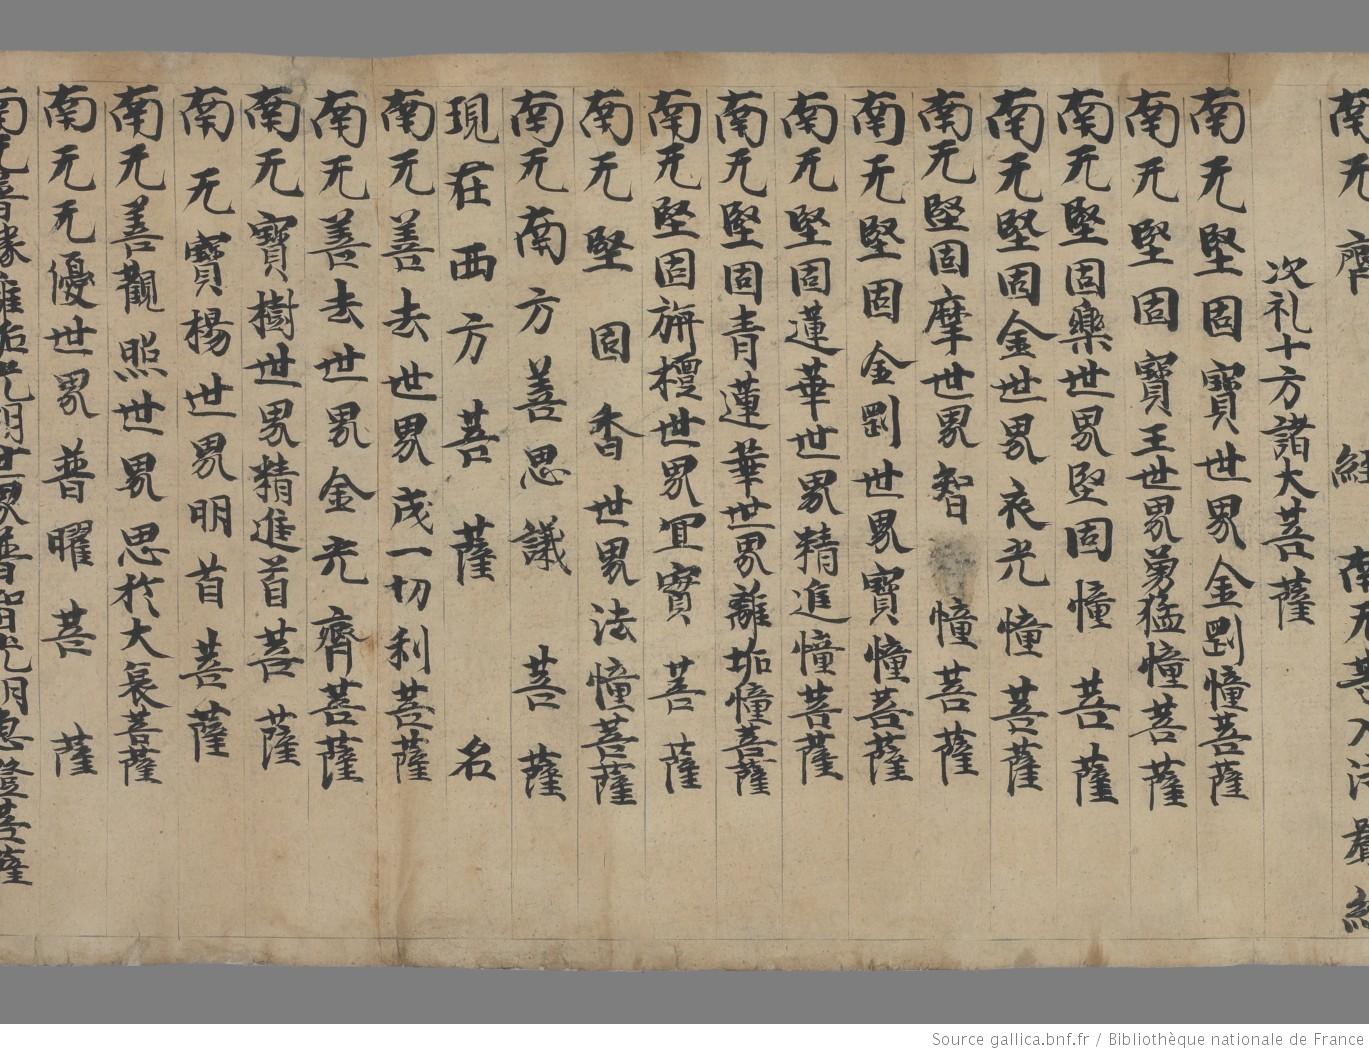 南无齊 經 南无菩入法 經
次礼十方諸大菩薩
南无堅固寶世界金剛幢菩薩
南无堅固寶王世界勇猛幢菩薩
南无堅固樂世界堅固幢菩薩
南无堅固金世界衣光幢菩薩
南无堅固摩世界智幢菩薩
南无堅固金剛世界寶幢菩薩
南无堅固蓮華世界精進幢菩薩
南无堅固青蓮華世界離垢幢菩薩
南无堅固旃檀世界宜寶菩薩
南无堅固香世界法幢菩薩
南无南方善思議菩薩
現在西方菩薩名
南无善去世界茂一切利菩薩
南无善去世界金光齊菩薩
南无寶樹世界精進首菩薩
南无寶楊世界明首菩薩
南无善觀照世界思於大哀菩薩
南无无優世界普曜菩薩
南无普緣離垢光明世界普智光明惠登菩薩
Source gallica.bnf.fr / Bibliothèque nationale de France